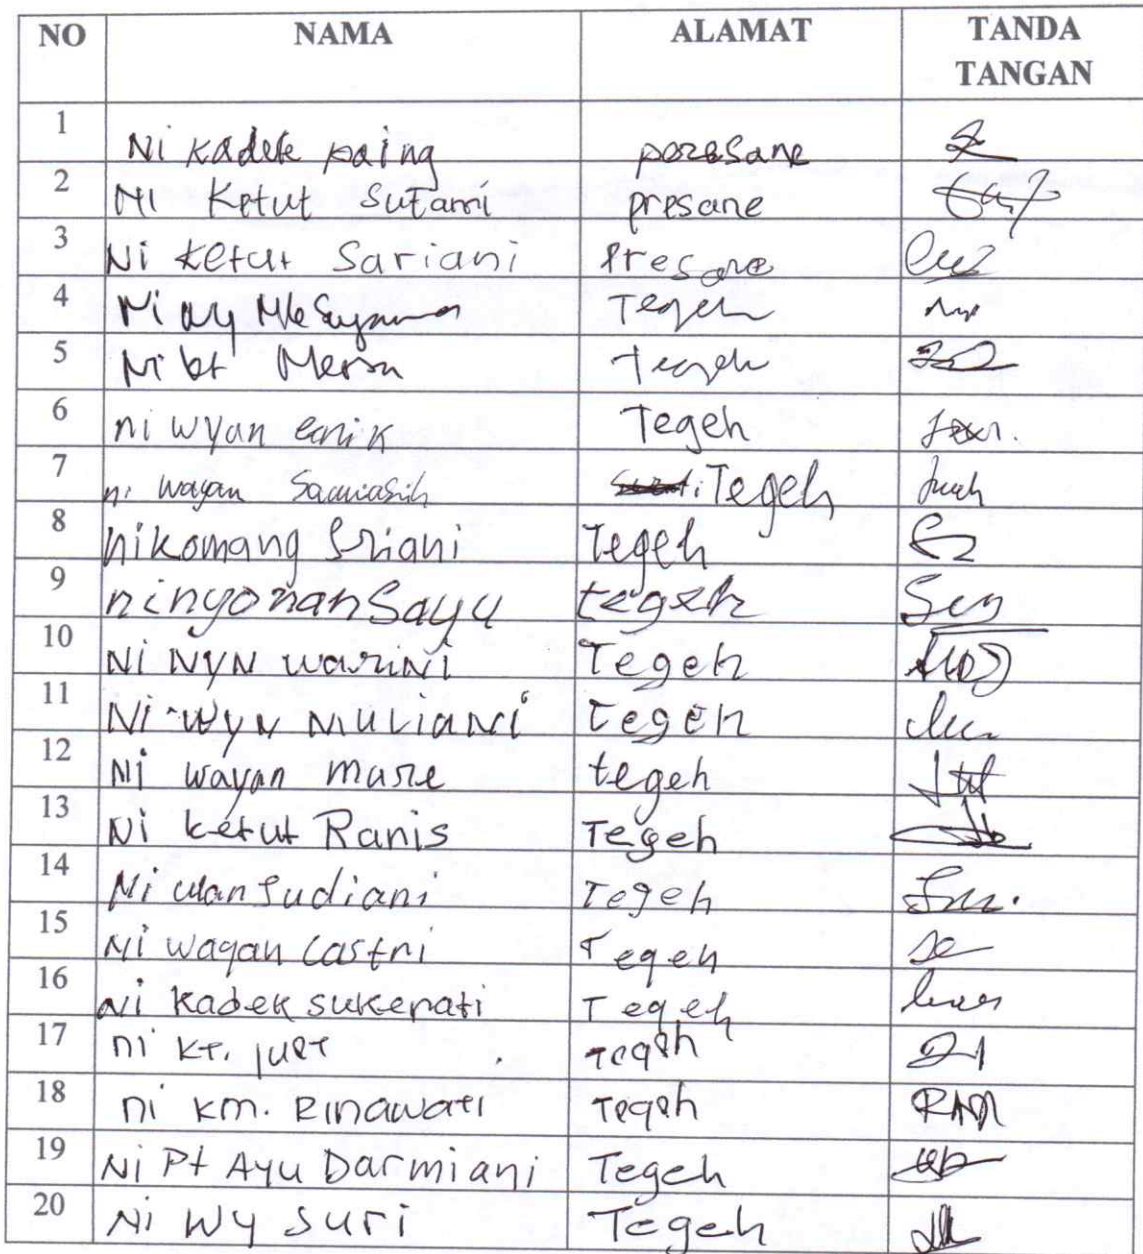 NO NAMA ALAMAT TANDA TANGAN
1 Ni Kadek paing poresane
2 Ni Ketut Sutami presane
3 Ni Ketut Sariani Presane
4 Ni Tegeh
5 Ni kt Mersa Tegeh
6 ni wyan enik Tegeh
7 ni wayan Tegeh
8 ni komang Sriani Tegeh
9 ni nyoman Sayu tegeh
10 Ni NYN warini Tegeh
11 Ni wyN Muliani Tegeh
12 Ni wayan mure tegeh
13 Ni ketut Ranis Tegeh
14 Ni wan Sudiani Tegeh
15 Ni wayan Castri Tegeh
16 Ni Kadek sukerati Tegeh
17 ni KT. juet Tegeh
18 ni KM. Rinawati Tegeh
19 Ni Pt Ayu Darmiani Tegeh
20 Ni Wy Suri Tegeh